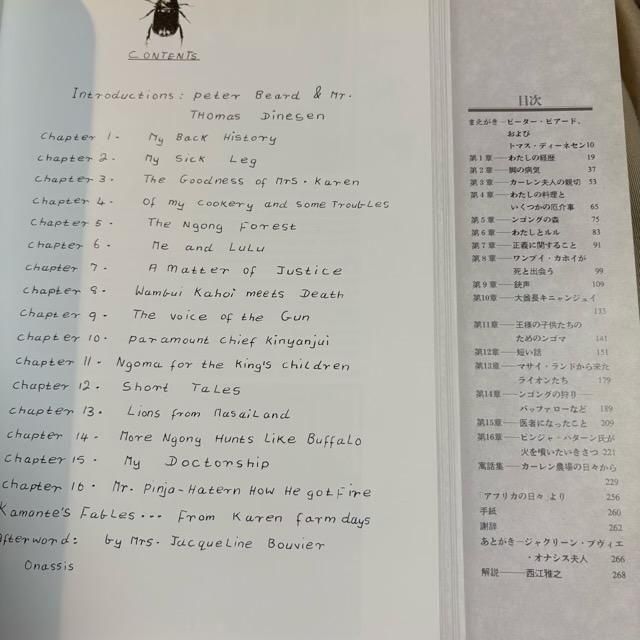 CONTENTS
Introductions: Peter Beard & Mr.
Thomas Dinesen
Chapter 1. My Back History
Chapter 2. My Sick Leg
Chapter 3. The Goodness of Mrs. Karen
Chapter 4. Of my cookery and some Troubles
Chapter 5. The Ngong Forest
Chapter 6. Me and Lulu
Chapter 7. A Matter of Justice
Chapter 8. Wambui Kahoi meets Death
Chapter 9. The voice of the Gun
Chapter 10. Paramount Chief Kinyanjui
Chapter 11. Ngoma for the King's children
Chapter 12. Short Tales
Chapter 13. Lions from Masailand
Chapter 14. More Ngong Hunts Like Buffalo
Chapter 15. My Doctorship
Chapter 16. Mr. Pinja-Hatern How He got Fire
Kamante's Fables... From Karen farm days
Afterword: by Mrs. Jacqueline Bouvier
Onassis
目次
まえがき―ピーター・ビアード、
および
トマス・ディーネセン10
第1章――わたしの経歴 19
第2章――脚の病気 37
第3章――カーレン夫人の親切 53
第4章――わたしの料理と
いくつかの厄介事 65
第5章――ンゴングの森 75
第6章――わたしとルル 83
第7章――正義に関すること 91
第8章――ワンブイ・カホイが
死と出会う 99
第9章――銃声 109
第10章――大酋長キニャンジュイ
133
第11章――王様の子供たちの
ためのンゴマ 141
第12章――短い話 151
第13章――マサイ・ランドから来た
ライオンたち 179
第14章――ンゴングの狩り――
バッファローなど 189
第15章――医者になったこと 209
第16章――ピンジャ・ハターン氏が
火を噴いたいきさつ 221
寓話集――カーレン農場の日々から
229
「アフリカの日々」より 256
手紙 260
謝辞 262
あとがき―ジャクリーン・ブヴィエ
・オナシス夫人 266
解説――西江雅之 268